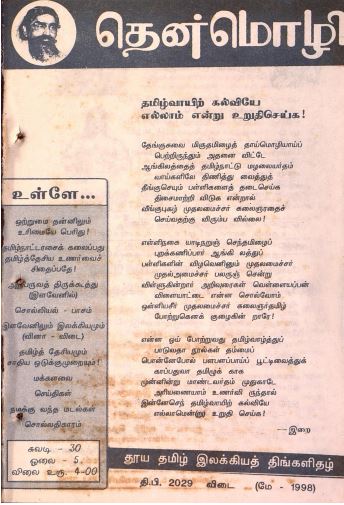 தென்மொழி
தமிழ்வாயிற் கல்வியே
எல்லாம் என்று உறுதிசெய்க!
தேங்குசுவை மிகுதமிழைத் தாய்மொழியாய்ப்
பெற்றிருந்தும் அதனை விட்டே
ஆங்கிலத்தைத் தமிழ்நாட்டு மழலையர்தம்
வாய்களிலே திணித்து வைத்துத்
தீங்குசெயும் பள்ளிகளைத் தடைசெய்க
திசைமாற்றி விடுக என்றால்
வீங்குபுகழ் முதலமைச்சர் கலைஞரதைச்
செய்வதற்கு விரும்ப வில்லை!
எள்ளிநகை யாடிநறுஞ் செந்தமிழைப்
புறக்கணிப்பார் ஆங்கி லத்துப்
பள்ளிகளின் விழவெனினும் முதலமைச்சர்
முதல்அமைச்சர் பலருஞ் சென்று
விள்ளுகின்றார் அறிவுரைகள் வெள்ளையப்பன்
விளையாட்டை என்ன சொல்வோம்
ஒள்ளியசீர் முதலமைச்சர் கலைஞர்தமிழ்
போற்றுகெனக் குழைகின் றாரே!
என்ன ஒய் போற்றுவது தமிழ்வாழ்த்துப்
பாடுவதா நூல்கள் தம்மைப்
பொன்னேபோல் பளபளப்பாய்ப் பூட்டிவைத்துக்
காப்பதுவா தமிழுக் காக
முன்னின்று மாண்டவர்தம் முதுகாடே
அரியணையாம் உணர்வி ருந்தால்
இன்னேசெந் தமிழ்வாயிற் கல்வியே
எல்லாமென்று உறுதி செய்க!
— இறை
உள்ளே...
ஒற்றுமை தன்னிலும்
உரிமையே பெரிது!
தமிழ்நாட்டரசைக் கலைப்பது
தமிழ்த்தேசிய உணர்வைச்
சிதைப்பதே!
திருக்கூத்து
(இளவேனில்)
சொல்வியல் - பாசம்
இளவேனிலும் இலக்கியமும்
(வினா - விடை)
தமிழ்த் தேசியமும்
சாதிய ஒடுக்குமுறையும்!
மக்களவை
செய்திகள்
நமக்கு வந்த மடல்கள்
சொல்வதிகாரம்
சுவடி - 30
ஓலை - 5
விலை உரு. 4-00
தூய தமிழ் இலக்கியத் திங்களிதழ்
தி.பி. 2029 விடை (மே - 1998)